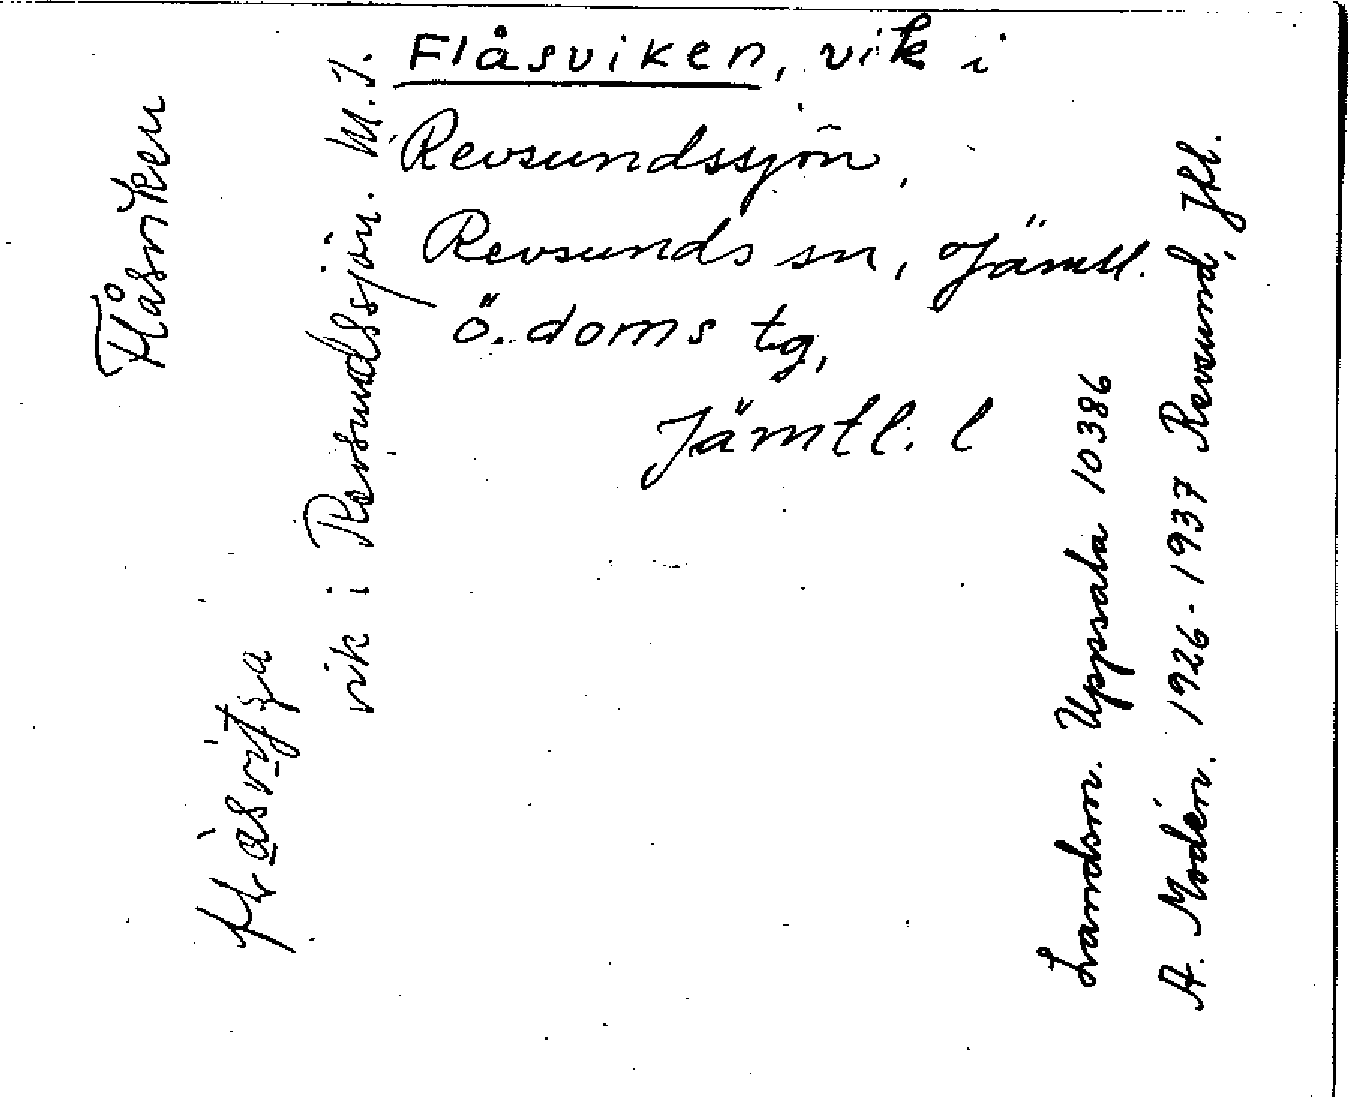 Flåsviken, vik i
Revsundssjön,
Revsunds sn, Jämtl.
ö. doms tg,
Jämtl. l
Flåsviken
vik i Revsundssjön. M.J.
Landsm. Uppsala 10386
A. Modén. 1926-1937 Revsund, Jtl.